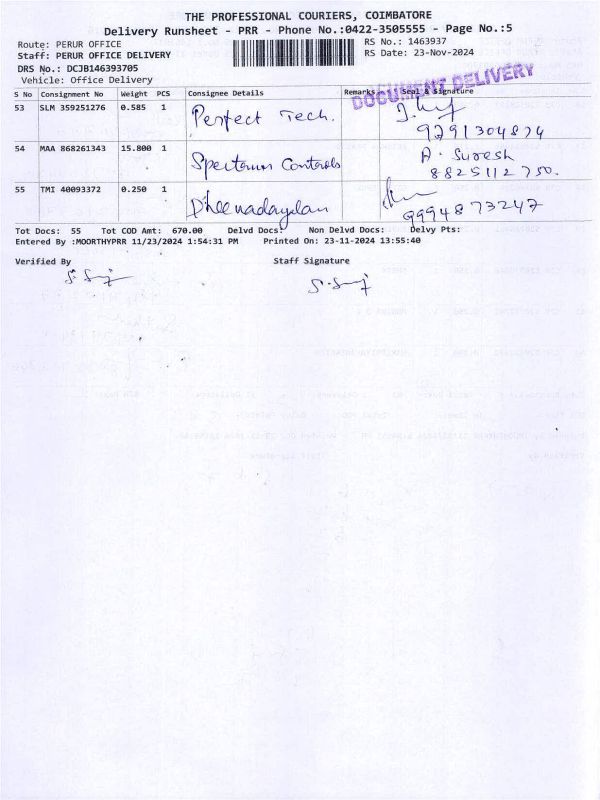 THE PROFESSIONAL COURIERS, COIMBATORE
Delivery Runsheet - PRR - Phone No.:0422-3505555 - Page No.:5
Route: PERUR OFFICE RS No.: 1463937
Staff: PERUR OFFICE DELIVERY RS Date: 23-Nov-2024
DRS No.: DCJB146393705
Vehicle: Office Delivery
DOCUMENT DELIVERY
S No Consignment No Weight PCS Consignee Details Remarks Seal & Signature
53 SLM 359251276 0.585 1 Perfect Tech.
9791304874
54 MAA 868261343 15.800 1 Spectrum Controls A. Suresh
8825112750.
55 TMI 40093372 0.250 1 Dheenadayalan
9994873247
Tot Docs: 55 Tot COD Amt: 670.00 Delvd Docs: Non Delvd Docs: Delvy Pts:
Entered By :MOORTHYPRR 11/23/2024 1:54:31 PM Printed On: 23-11-2024 13:55:40
Verified By Staff Signature